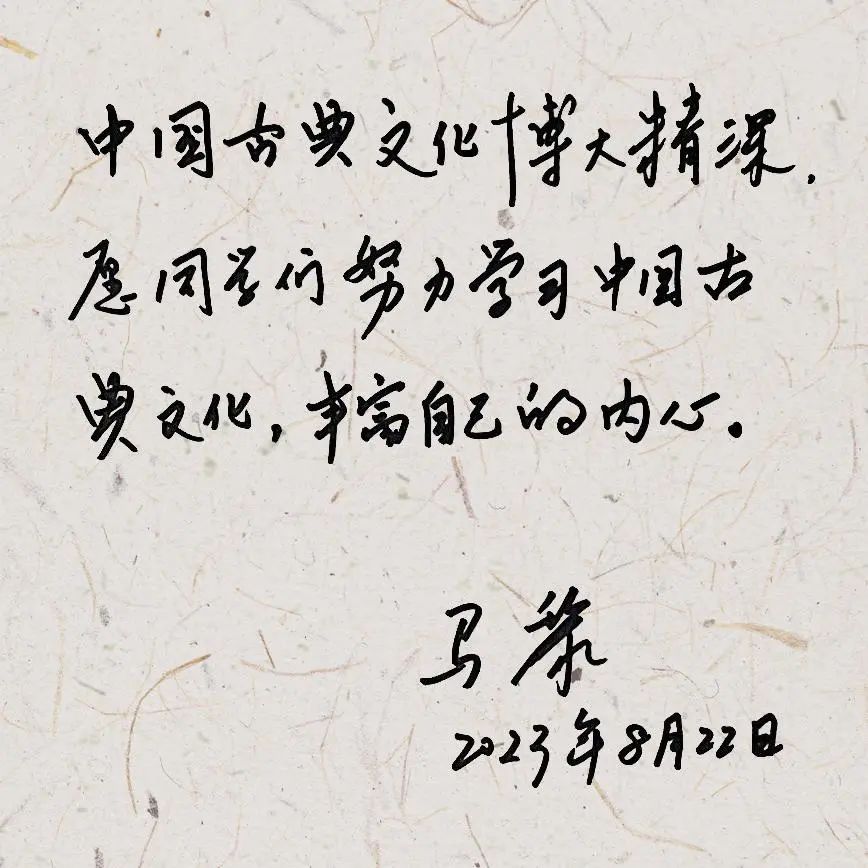 中国古典文化博大精深,
愿同学们努力学习中国古
典文化,丰富自己的内心。
马黎
2023年8月22日